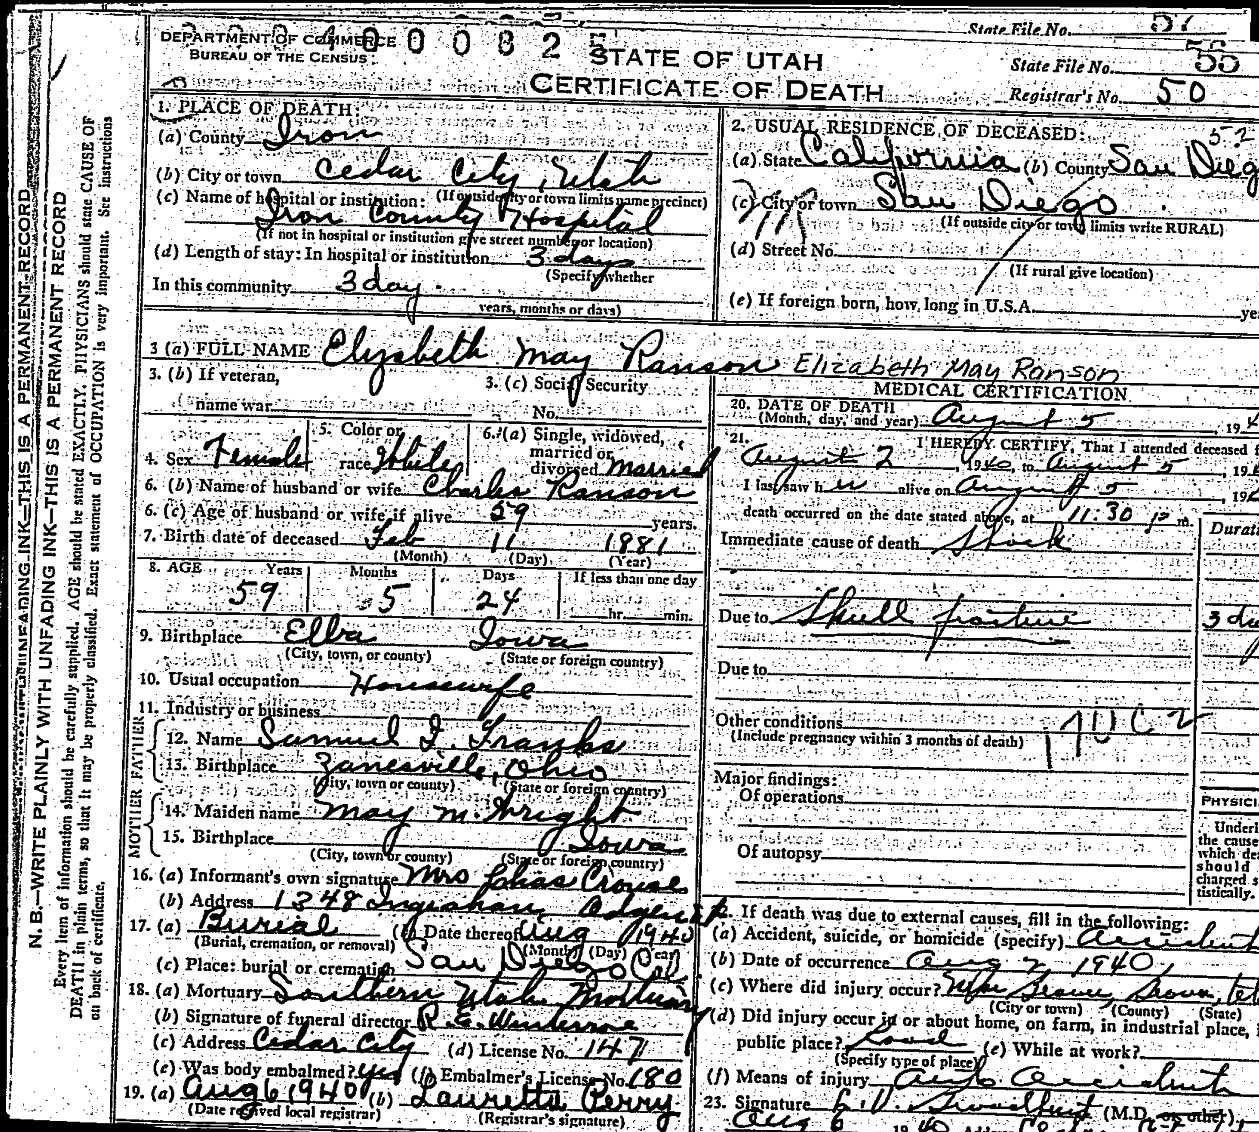 State File No. 57
DEPARTMENT OF COMMERCE
BUREAU OF THE CENSUS
STATE OF UTAH
State File No. 55
CERTIFICATE OF DEATH
Registrar's No. 50
1. PLACE OF DEATH:
(a) County Iron
(b) City or town Cedar City, Utah
(If outside city or town limits name precinct)
(c) Name of hospital or institution:
Iron County Hospital
(If not in hospital or institution give street number or location)
(d) Length of stay: In hospital or institution 3 days
(Specify whether
In this community 3 day.
years, months or days)
2. USUAL RESIDENCE OF DECEASED:
52
(a) State California (b) County San Dieg
(c) City or town San Diego
(If outside city or town limits write RURAL)
(d) Street No.
(If rural give location)
(e) If foreign born, how long in U.S.A.
3 (a) FULL NAME Elizabeth May Ranson Elizabeth May Ranson
3. (b) If veteran,
name war
3. (c) Social Security
No.
4. Sex Female
5. Color or
race White
6. (a) Single, widowed,
married or
divorced married
6. (b) Name of husband or wife Charles Ranson
6. (c) Age of husband or wife if alive 59 years.
7. Birth date of deceased Feb 11 1881
(Month) (Day) (Year)
8. AGE Years Months Days If less than one day
59 5 24 hr. min.
9. Birthplace Elba Iowa
(City, town, or county) (State or foreign country)
10. Usual occupation Housewife
11. Industry or business
FATHER
12. Name Samuel I. Franks
13. Birthplace Zanesville, Ohio
(City, town or county) (State or foreign country)
MOTHER
14. Maiden name May M. Wright
15. Birthplace Iowa
(City, town or county) (State or foreign country)
16. (a) Informant's own signature Mrs Crouse
(b) Address 1348 Ingraham
17. (a) Burial (b) Date thereof Aug 1940
(Burial, cremation, or removal) (Month) (Day) (Year)
(c) Place: burial or cremation San Diego Cal.
18. (a) Mortuary Southern Utah Mortuary
(b) Signature of funeral director R. E. Winterrose
(c) Address Cedar City (d) License No. 147
(e) Was body embalmed? yes (f) Embalmer's License No. 180
19. (a) Aug 6, 1940 (b) Lauretta Perry
(Date received local registrar) (Registrar's signature)
MEDICAL CERTIFICATION
20. DATE OF DEATH
(Month, day, and year) August 5, 194
21. I HEREBY CERTIFY, That I attended deceased f
August 2, 1940, to August 5, 19
I last saw h er alive on August 5, 19
death occurred on the date stated above, at 11:30 p m.
Durat
Immediate cause of death Shock
Due to Skull fracture 3 da
Due to
Other conditions
(Include pregnancy within 3 months of death)
170 C 2
Major findings:
Of operations
Of autopsy
PHYSICI
Underl
the cause
which de
should
charged s
tistically.
22. If death was due to external causes, fill in the following:
(a) Accident, suicide, or homicide (specify) accident
(b) Date of occurrence Aug 2, 1940
(c) Where did injury occur?
(City or town) (County) (State)
(d) Did injury occur in or about home, on farm, in industrial place, i
public place? Road (e) While at work?
(Specify type of place)
(f) Means of injury Auto Accident
23. Signature (M.D. or other)
Aug 6 1940
N. B.—WRITE PLAINLY WITH UNFADING INK—THIS IS A PERMANENT RECORD
N. B.—WRITE PLAINLY WITH UNFADING INK—THIS IS A PERMANENT RECORD
Every item of information should be carefully supplied. AGE should be stated EXACTLY. PHYSICIANS should state CAUSE OF
DEATH in plain terms, so that it may be properly classified. Exact statement of OCCUPATION is very important. See instructions
on back of certificate.